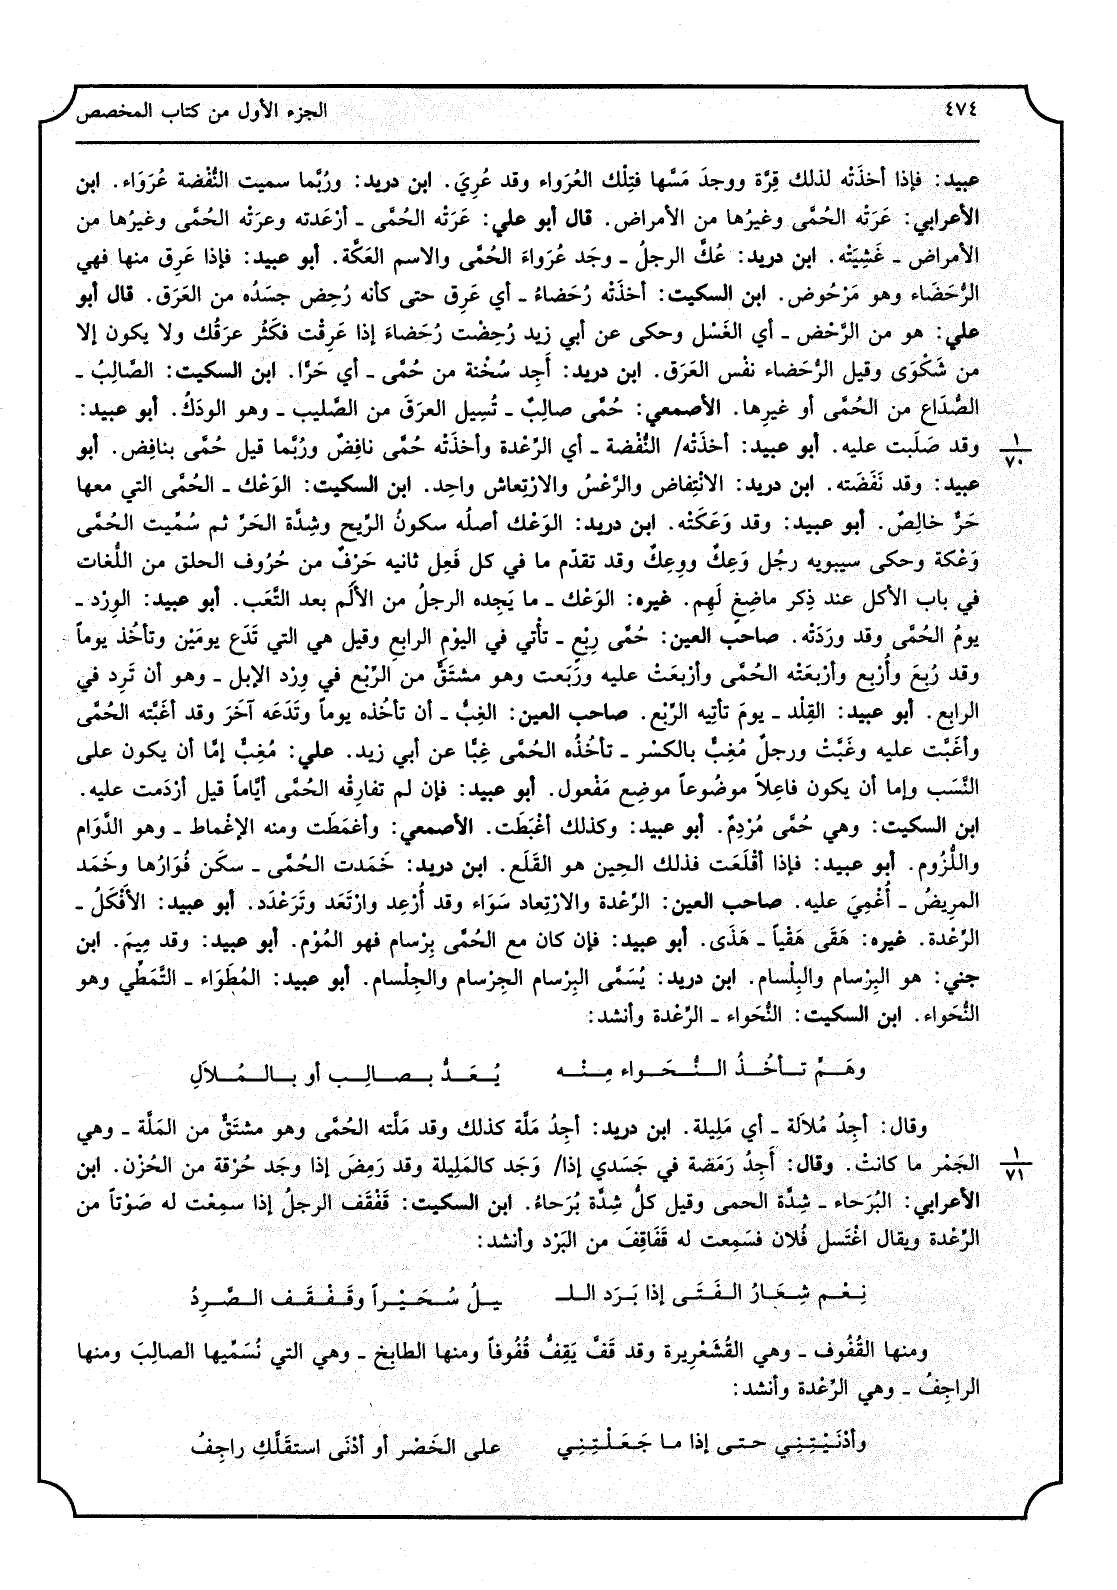 ٤٧٤
الجزء الأول من كتاب المخصص
عبيد: فإذا أخذتْه لذلك قِرَّة ووجدَ مَسَّها فتِلْك العُرَواء وقد عُرِيَ. ابن دريد: ورُبَّما سميت النُّفْضة عُرَوَاء. ابن
الأعرابي: عَرَتْه الحُمَّى وغيرُها من الأمراض. قال أبو علي: عَرَتْه الحُمَّى ـ أرْعَدته وعرَتْه الحُمَّى وغيرُها من
الأمراض ـ غَشِيَتْه. ابن دريد: عُكَّ الرجلُ ـ وجَد عُرَواءَ الحُمَّى والاسم العَكَّة. أبو عبيد: فإذا عَرِق منها فهي
الرُّحَضَاء وهو مَرْحُوض. ابن السكيت: أخذَتْه رُحَضاءُ ـ أي عَرِق حتى كأنه رُحِض جسَدُه من العَرَق. قال أبو
علي: هو من الرَّحْض ـ أي الغَسْل وحكى عن أبي زيد رُحِضْت رُحَضاءَ إذا عَرِقْت فكَثُر عرَقُك ولا يكون إلا
من شَكْوَى وقيل الرُّحَضاء نفْس العَرَق. ابن دريد: أَجِد سُخْنة من حُمَّى ـ أي حَرًّا. ابن السكيت: الصَّالِبُ ـ
الصُّدَاع من الحُمَّى أو غيرِها. الأصمعي: حُمَّى صالِبٌ ـ تُسِيل العرَقَ من الصَّليب ـ وهو الودَكُ. أبو عبيد:
وقد صَلَبت عليه. أبو عبيد: أخذَتْه/ النُّفْضة ـ أي الرِّعْدة وأخذَتْه حُمَّى نافِضٌ ورُبَّما قيل حُمَّى بنافِض. أبو
١/٧٠
عبيد: وقد نَفَضَته. ابن دريد: الانْتِفاض والرَّعْسُ والارْتِعاش واحِد. ابن السكيت: الوَعْك ـ الحُمَّى التي معها
حَرٌّ خالِصٌ. أبو عبيد: وقد وَعَكَتْه. ابن دريد: الوَعْك أصلُه سكونُ الرِّيح وشِدَّة الحَرِّ ثم سُمِّيت الحُمَّى
وَعْكة وحكى سيبويه رجُل وَعِكٌ ووِعِكٌ وقد تقدّم ما في كل فَعِل ثانيه حَرْفٌ من حُرُوف الحلق من اللُّغات
في باب الأكل عند ذِكر ماضِغٍ لَهِم. غيره: الوَعْك ـ ما يَجِده الرجلُ من الألَم بعد التَّعَب. أبو عبيد: الوِرْد ـ
يومُ الحُمَّى وقد ورَدَتْه. صاحب العين: حُمَّى رِبْعٍ ـ تأْتي في اليوْم الرابعِ وقيل هي التي تَدَع يومَيْن وتأخُذ يوماً
وقد رُبعَ وأُرْبِع وأرْبَعَتْه الحُمَّى وأرْبَعَتْ عليه ورَبَعت وهو مشتَقٌّ من الرِّبْع في وِرْد الإبل ـ وهو أن تَرِد في
الرابع. أبو عبيد: القِلْد ـ يومَ تأتِيه الرِّبْع. صاحب العين: الغِبُّ ـ أن تأخُذه يوماً وتَدَعَه آخَرَ وقد أغَبَّته الحُمَّى
وأغَبَّت عليه وغَبَّتْ ورجلٌ مُغِبٌّ بالكسْر ـ تأخُذُه الحُمَّى غِبًّا عن أبي زيد. علي: مُغِبٌّ إمَّا أن يكون على
النَّسَب وإما أن يكون فاعِلاً موضُوعاً موضِع مَفْعول. أبو عبيد: فإن لم تفارِقْه الحُمَّى أيَّاماً قيل أرْدَمت عليه.
ابن السكيت: وهي حُمَّى مُرْدِمٌ. أبو عبيد: وكذلك أغْبَطَت. الأصمعي: وأغمَطَت ومنه الإغْماط ـ وهو الدَّوَام
واللُّزُوم. أبو عبيد: فإذا أقْلَعَت فذلك الحِين هو القَلَع. ابن دريد: خَمَدت الحُمَّى ـ سكَن فُوَارُها وخَمَد
المرِيضُ ـ أُغْمِيَ عليه. صاحب العين: الرِّعْدة والارْتِعاد سَوَاء وقد أُرْعِد وارْتَعَد وتَرَعْدَد. أبو عبيد: الأَفْكَلُ ـ
الرِّعْدة. غيره: هَقَى هَقْياً ـ هَذَى. أبو عبيد: فإن كان مع الحُمَّى بِرْسام فهو المُوْم. أبو عبيد: وقد مِيمَ. ابن
جني: هو البِرْسام والبِلْسام. ابن دريد: يُسَمَّى البِرْسام الجِرْسام والجِلْسام. أبو عبيد: المُطَوَاء ـ التَّمَطِّي وهو
النُّحَواء. ابن السكيت: النُّحَواء ـ الرِّعْدة وأنشد:
وهَمٍّ تـأخُـذُ الـنُّـحَـواء مِـنْـه    يُـعَـدُّ بـصـالِـب أو بـالـمُـلاَلِ
وقال: أجِدُ مُلالَة ـ أي مَلِيلة. ابن دريد: أجِدُ مَلَّة كذلك وقد مَلَّته الحُمَّى وهو مشتَقٌّ من المَلَّة ـ وهي
الجَمْر ما كانتْ. وقال: أَجِدُ رَمَضة في جَسَدي إذا/ وَجَد كالمَلِيلة وقد رَمِضَ إذا وجَد حُرْقة من الحُزْن. ابن
١/٧١
الأعرابي: البُرَحاء ـ شِدَّة الحمى وقيل كلُّ شِدَّة بُرَحاءُ. ابن السكيت: قَفْقَف الرجلُ إذا سمِعْت له صَوْتاً من
الرِّعْدة ويقال اغْتَسل فُلان فسَمِعت له قَفَاقِفَ من البَرْد وأنشد:
نِـعْـم شِـعَـارُ الـفَـتَـى إذا بَـرَد الـلـ    ـيـلُ سُـحَـيْـراً وقَـفْـقَـف الـصَّـرِدُ
ومنها القُفُوف ـ وهي القُشَعْرِيرة وقد قَفَّ يَقِفُّ قُفُوفاً ومنها الطابِخ ـ وهي التي نُسَمِّيها الصالِبَ ومنها
الراجِفُ ـ وهي الرِّعْدة وأنشد:
وأدْنَـيْـتِـنِـي حـتـى إذا مـا جَـعَـلْـتِـنِـي    على الخَصْر أو أدْنَى استقَلَّكِ راجِفُ